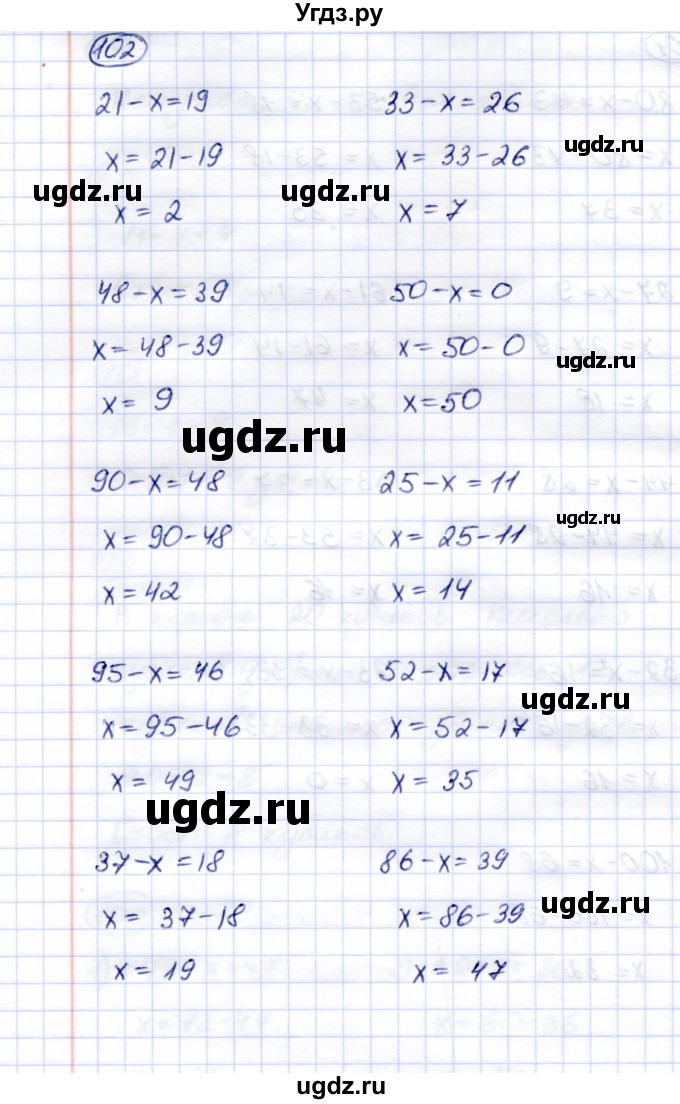 Угдз.ру
102
21-x=19 33-x=26
x=21-19 x=33-26
x=2 x=7
48-x=39 50-x=0
x=48-39 x=50-0
x=9 x=50
90-x=48 25-x=11
x=90-48 x=25-11
x=42 x=14
95-x=46 52-x=17
x=95-46 x=52-17
x=49 x=35
37-x=18 86-x=39
x=37-18 x=86-39
x=19 x=47
ugdz.ru
ugdz.ru
ugdz.ru
ugdz.ru
ugdz.ru
ugdz.ru
ugdz.ru
ugdz.ru
ugdz.ru
ugdz.ru